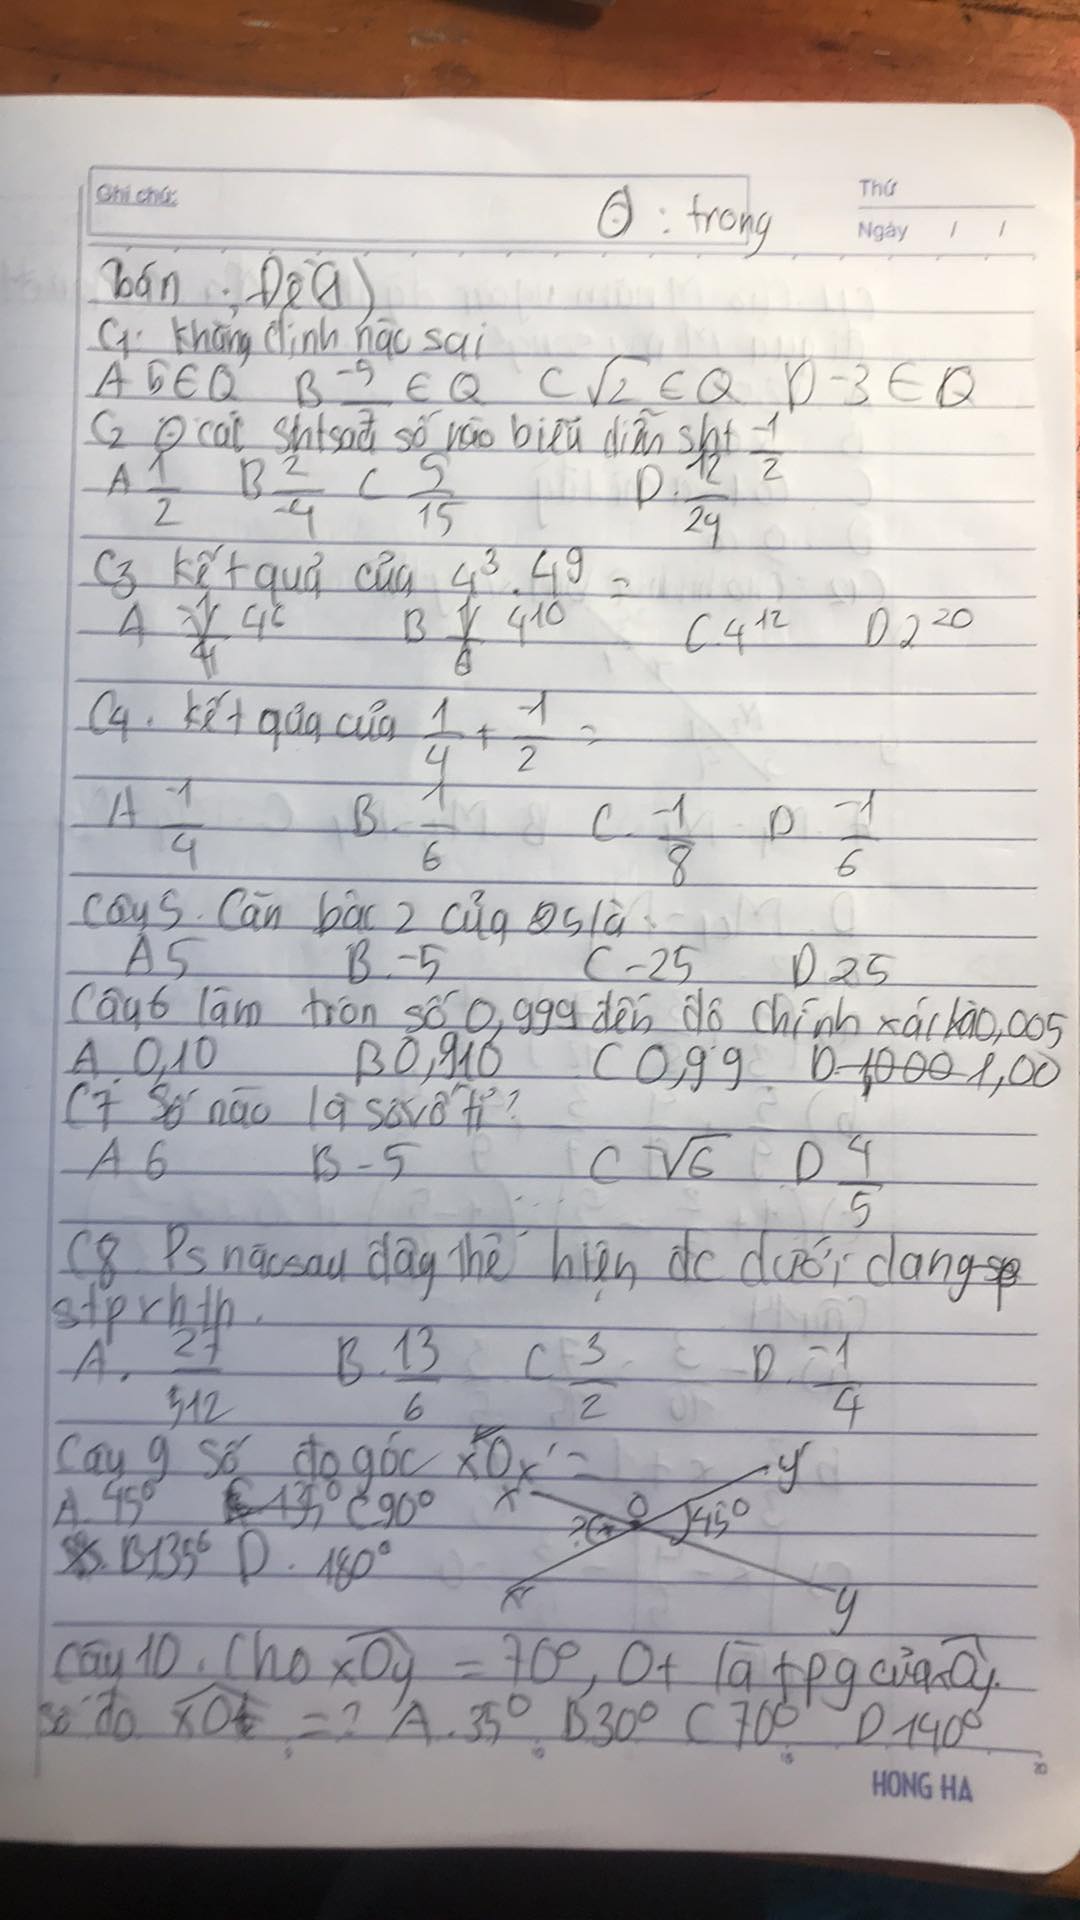 Ghi chú:
Θ : trong
Thứ
Ngày / /
Toán : Đề a)
C1. khẳng định nào sai
A 5 ∈ Q B -9 ∈ Q C √2 ∈ Q D -3 ∈ Q
C2 Θ các shtsađ số nào biểu diễn sht -1/2
A 1/2 B 2/-4 C 5/15 D. 12/24
C3 kết quả của 4³.4⁹ =
A 4⁶ B 4¹⁰ C.4¹² D 2²⁰
C4. kết quả của 1/4 + -1/2 =
A -1/4 B. 1/6 C. -1/8 D -1/6
Câu 5. Căn bậc 2 của 25 là:
A 5 B.-5 C -25 D 25
Câu 6 làm tròn số 0,999 đến độ chính xác là 0,005
A. 0,10 B 0,910 C 0,99 D 1,00
C7 Số nào là số vô tỉ?
A 6 B -5 C √6 D 4/5
C8 Ps nào sau đây thể hiện đc dưới dạng
stprhth.
A. 27/512 B. 13/6 C 3/2 D. -1/4
Câu 9 số đo góc xOx' =
A. 45⁰ C 90⁰
B.135⁰ D. 180⁰
x' O y' 45⁰
? x y
Câu 10. Cho xOy = 70⁰, Ot là tpg của xOy.
số đo xOt = ? A. 35⁰ B 30⁰ C 70⁰ D.140⁰
5 10 15 20
HONG HA